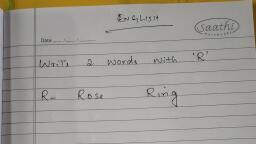 ENGLISH
Saathi
Date
Write 2 words with 'R'
R- Rose Ring